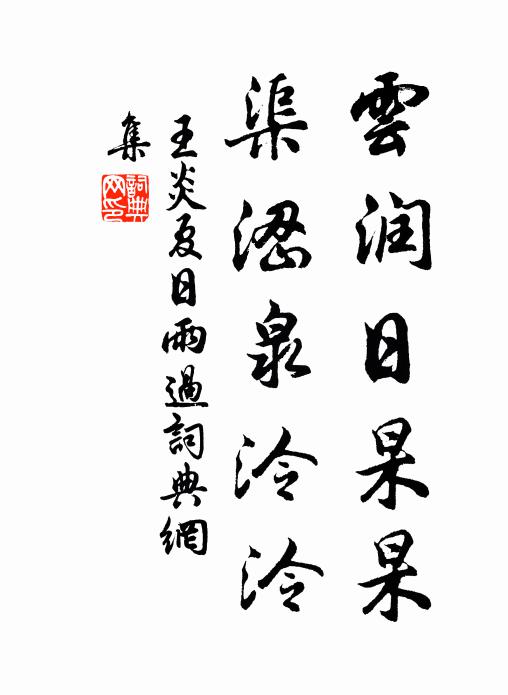 雲润日杲杲
渠泉泠泠
王炎夏日雨過詞典網
集
詞典
网印